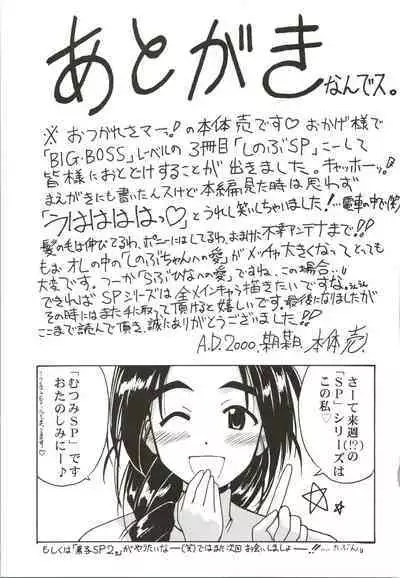 あとがき
なんでス。
※ おつかれさマー。!!の本体売です♡ おかげ様で
「BIG・BOSS」レーベルの3冊目「しのぶSP」こーして
皆様におとどけすることが出きました。キャッホーッ。!!
まえがきにも書いたんスけど本編見た時は思わず
「うはははははっ♡」とうれし笑いしちゃいました!…電車の中で(笑)
髪の毛は伸びてるわ、ポニーにはしてるわ、おまけに不幸アンテナまで!!
もぉオレの中の「しのぶちゃんへの愛」がメッチャ大きくなってとっても
大変です。つーか「らぶひなへの愛」ですね、この場合…。
できればSPシリーズは全メインキャラ描きたいですな。
その時にはまた手に取って頂けると嬉しいです。最後になりましたが
ここまで読んで頂き、誠にありがとうございました!!
A.D.2000. 本体売.
さーて来週(!?)の
「SP」シリーズは
この私♡
「むつみSP」です
おたのしみにー♪
もしくは「素子SP2」がやりたいなー(笑)ではまた次回お会いしましょー!!…たぶん。